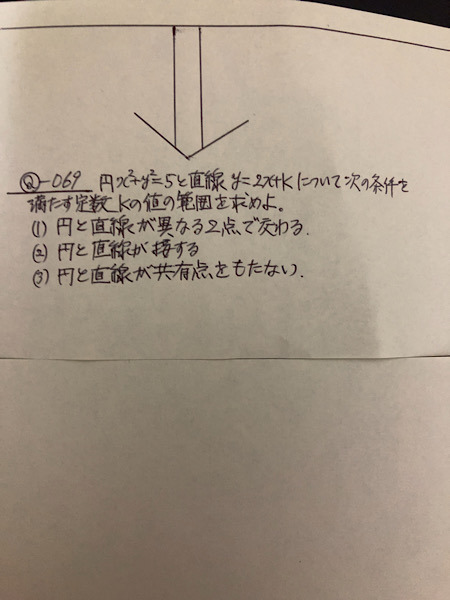 Q-069 円x²+y²=5と直線y=2x+kについて次の条件を
満たす定数kの値の範囲を求めよ。
(1) 円と直線が異なる2点で交わる.
(2) 円と直線が接する
(3) 円と直線が共有点をもたない.